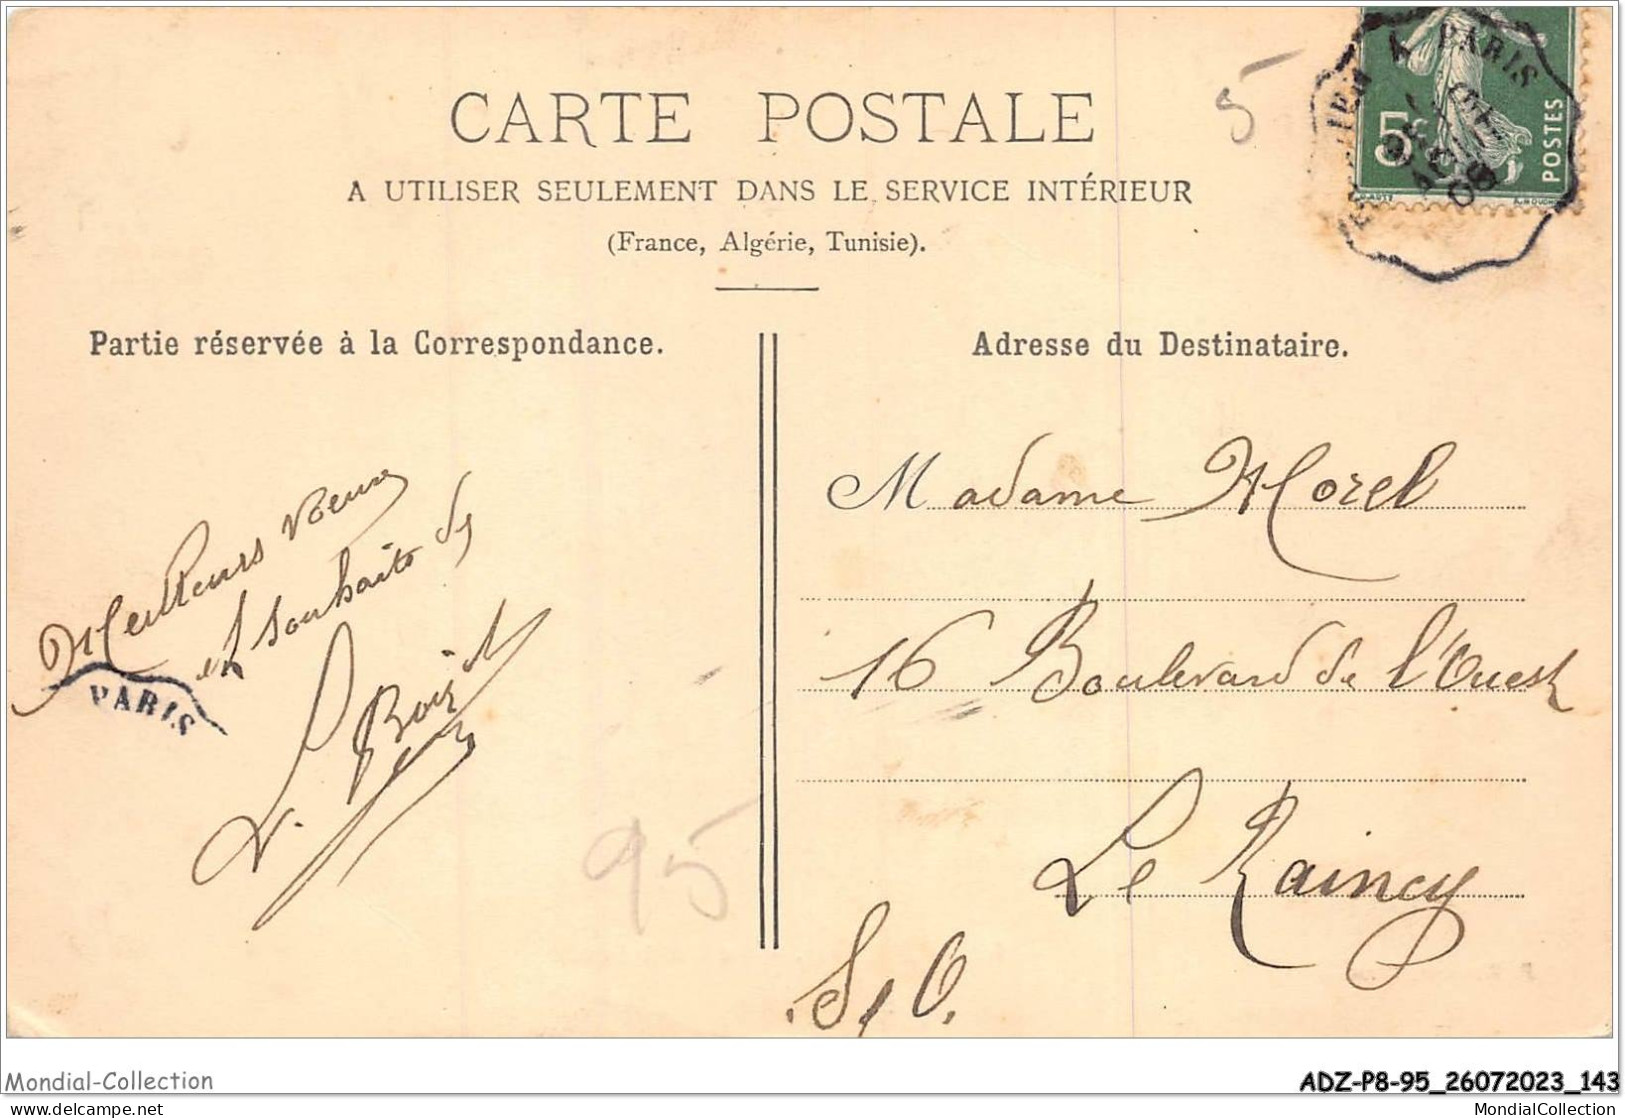 CARTE POSTALE
5
A UTILISER SEULEMENT DANS LE SERVICE INTÉRIEUR
(France, Algérie, Tunisie).
A PARIS
5c
POSTES
AOUT
08
Partie réservée à la Correspondance.
Adresse du Destinataire.
Meilleurs voeux
et souhaits de
L.
PARIS
95
Madame Morel
16 Boulevard de l'Ouest
Le Raincy
S. O.
Mondial-Collection
ADZ-P8-95_26072023_143
https://www.delcampe.net
MondialCollection